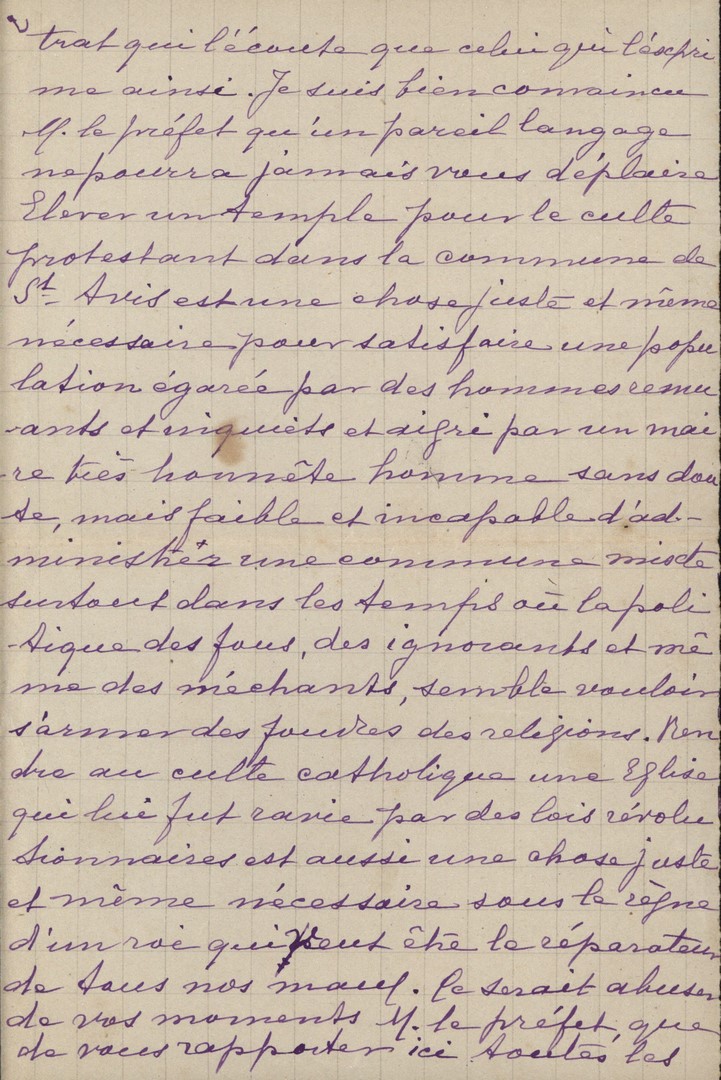 trat qui l'écoute que celui qui l'expri
me ainsi. Je suis bien convaincu
M. le préfet qu'un pareil langage
ne pourra jamais vous déplaire
Elever un temple pour le culte
protestant dans la commune de
St. Avis est une chose juste et même
nécessaire pour satisfaire une popu
lation égarée par des hommes remu
-ants et inquiets et aigri par un mai
-re très honnête homme sans dou
te, mais faible et incapable d'ad-
ministrer une commune mixte
surtout dans les temps où la poli
-tique des fous, des ignorants et mê
me des méchants, semble vouloir
s'armer des foudres des religions. Ren
dre au culte catholique une Eglise
qui lui fut ravie par des lois révolu
tionnaires est aussi une chose juste
et même nécessaire sous le règne
d'un roi qui veut être le réparateur
de tous nos maux. Ce serait abuser
de vos moments M. le préfet, que
de vous rapporter ici toutes les